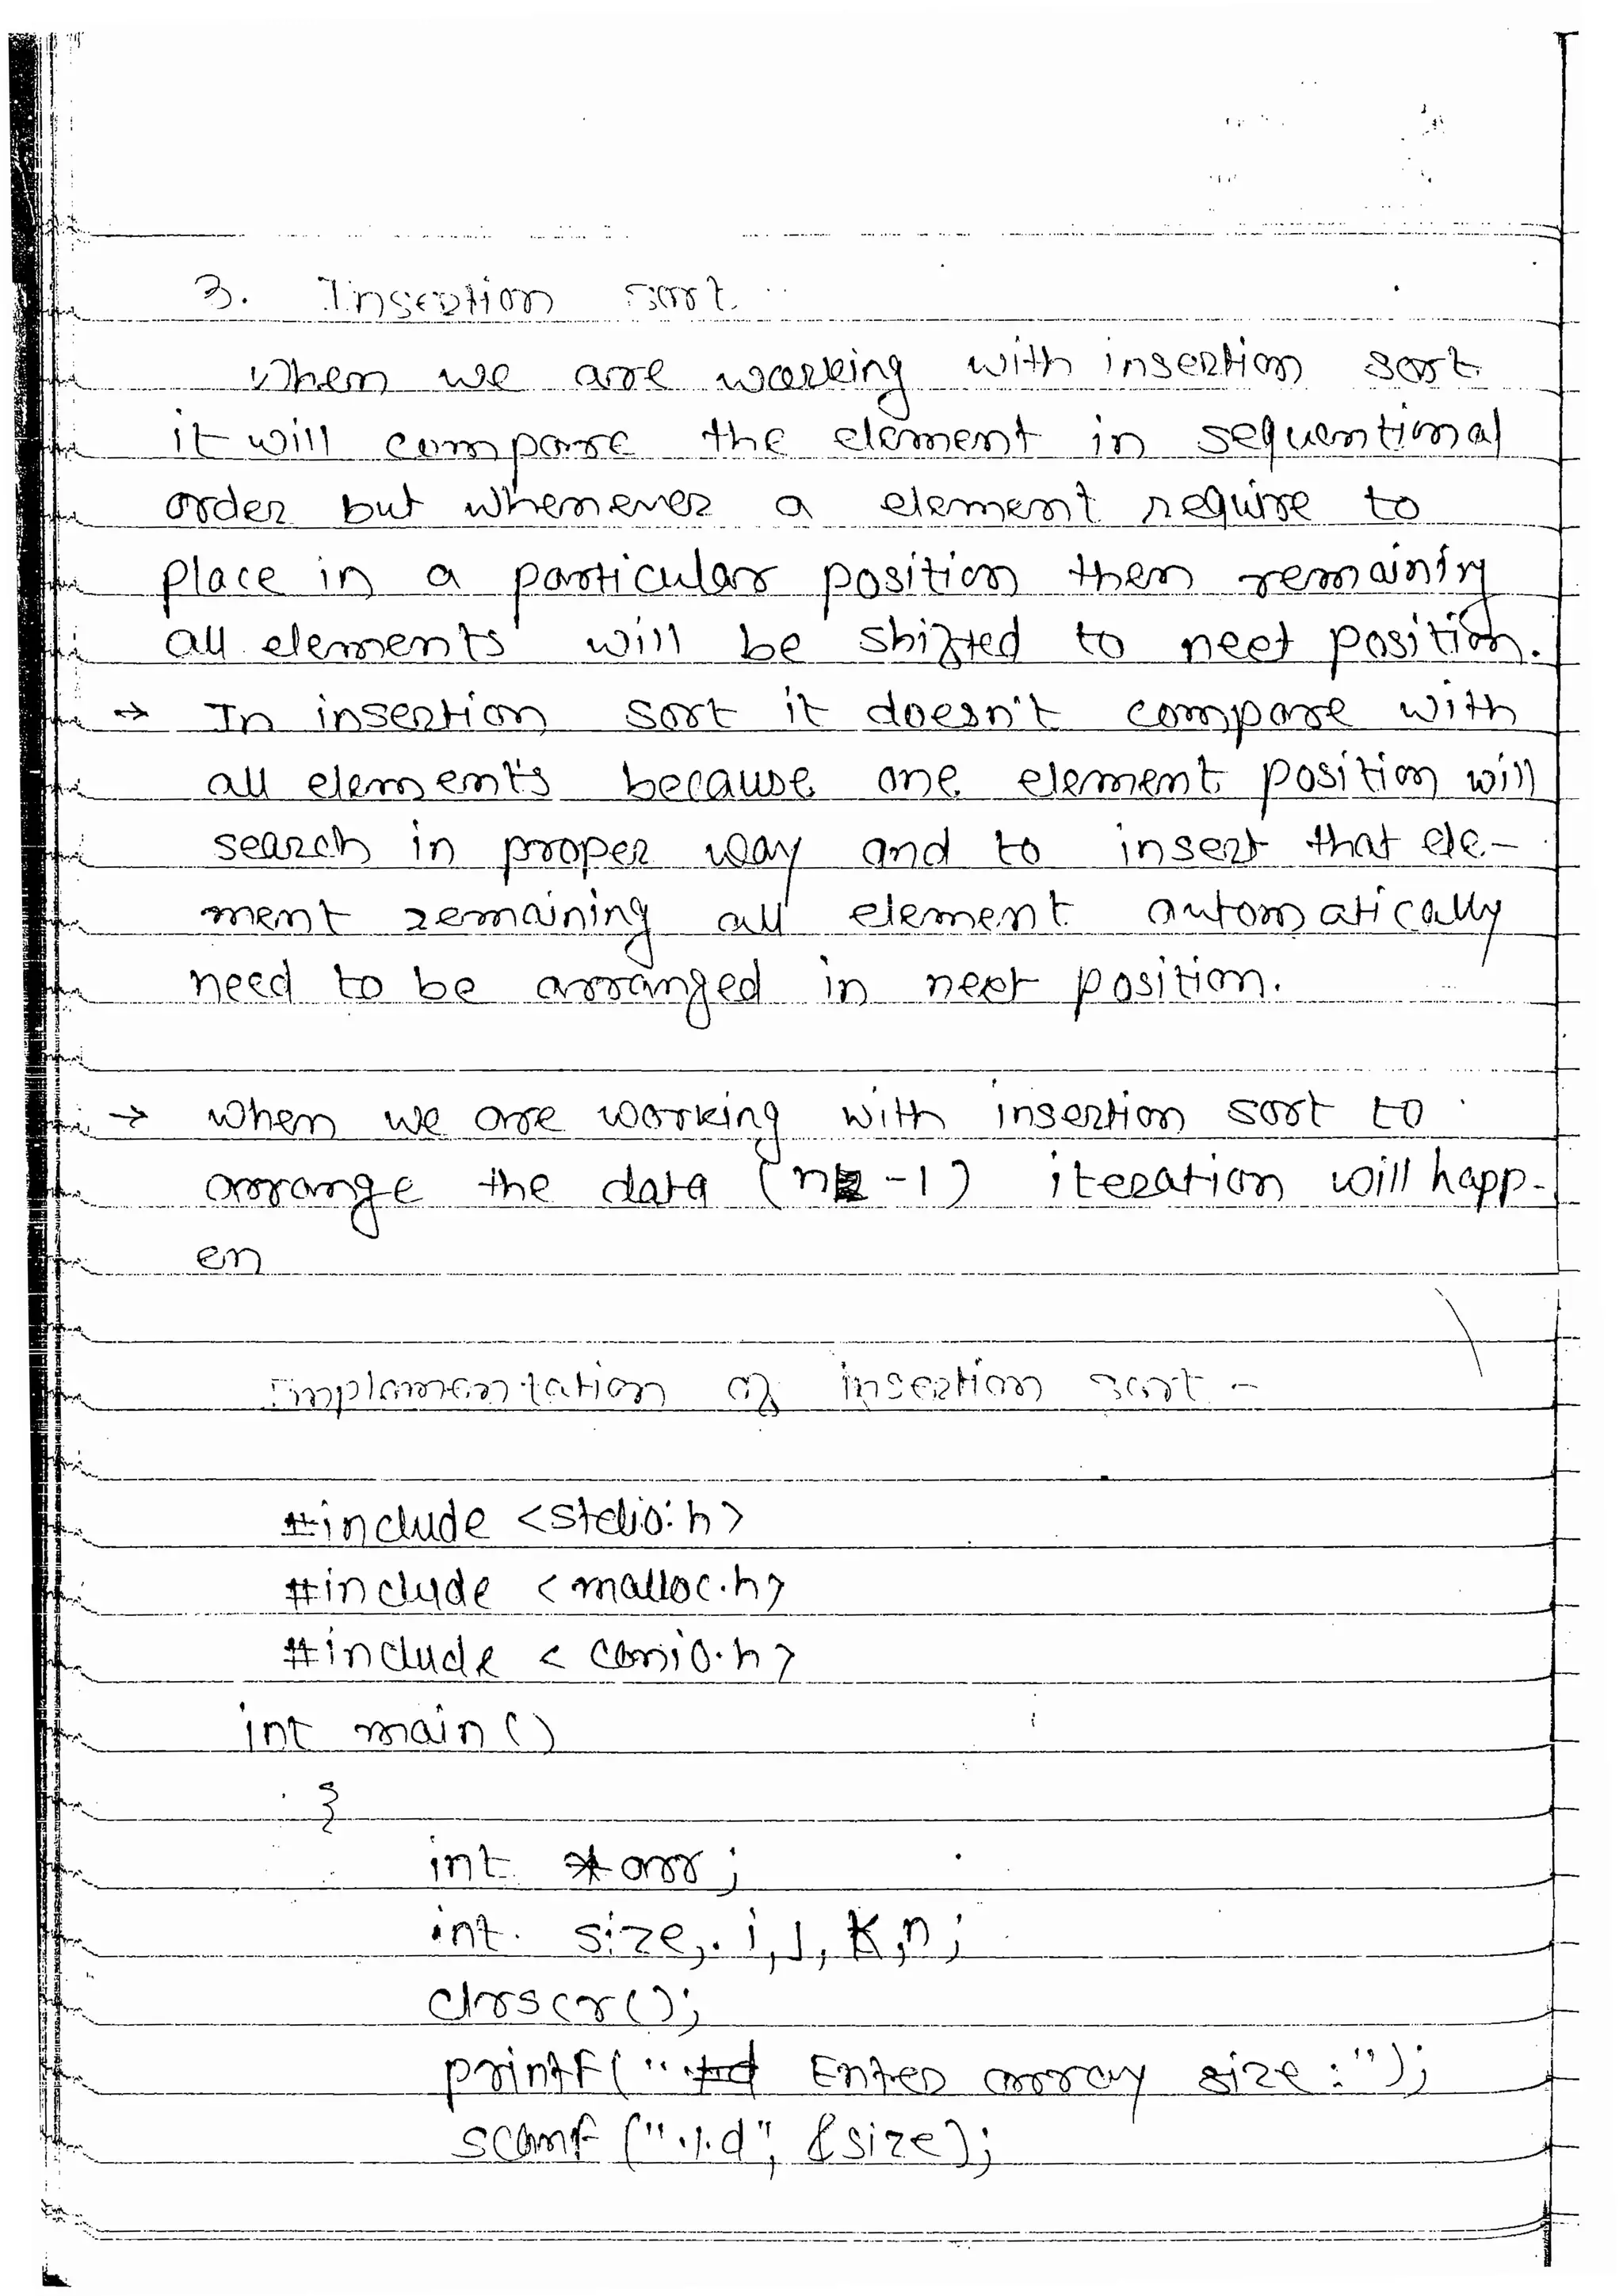 3. Insertion sort
When we are working with insertion sort
it will compare the element in sequentional
order but whenever a element require to
place in a particular position then remaining
all elements will be shifted to next position.
→ In insertion sort it doesn't compare with
all elements because one element position will
search in proper way and to insert that ele-
ment remaining all element automatically
need to be arranged in next position.
→ when we are working with insertion sort to
arrange the data (n -1) iteration will happ-
en
Implementation of insertion sort -
#include <stdio.h>
#include <malloc.h>
#include <conio.h>
int main()
{
int *arr;
int size, i, j, k, n;
clrscr();
printf(" Enter array size :");
scanf ("%d", &size);